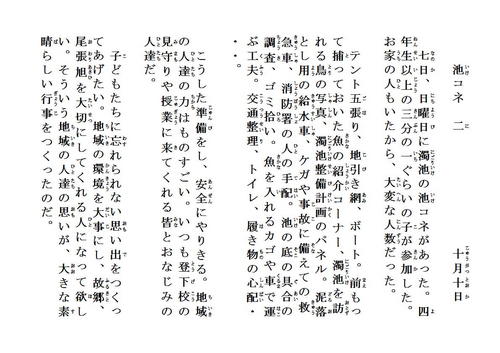 池コネ　二　　　十月十日
七日、日曜日に濁池の池コネがあった。四
年生以上の三分の一ぐらいの子が参加した。
お家の人もいたから、大変な人数だった。
テント五張り、地引き網、ボート。前もっ
て捕っておいた魚の紹介コーナー、濁池を訪
れる鳥の写真、濁池整備計画のパネル。泥落
とし用の給水車、ケガや事故に備えての救
急車、消防署の人の手配。池の底の具合の
調査、ゴミ拾い。魚を入れるカゴや車で運
ぶ工夫。交通整理、トイレ、履き物の心配・
・・。
こうした準備をし、安全にやりきる。地域
の人達の力はものすごい。いつも登下校の
見守りや授業に来てくれる皆とおなじみの
人達だ。
子どもたちに忘れられない思い出をつくっ
てあげたい。地域の環境を大事にし、故郷、
尾張旭を大切にしてくれる人になって欲し
い。そういう地域の人達の思いが、大きな素
晴らしい行事をつくったのだ。